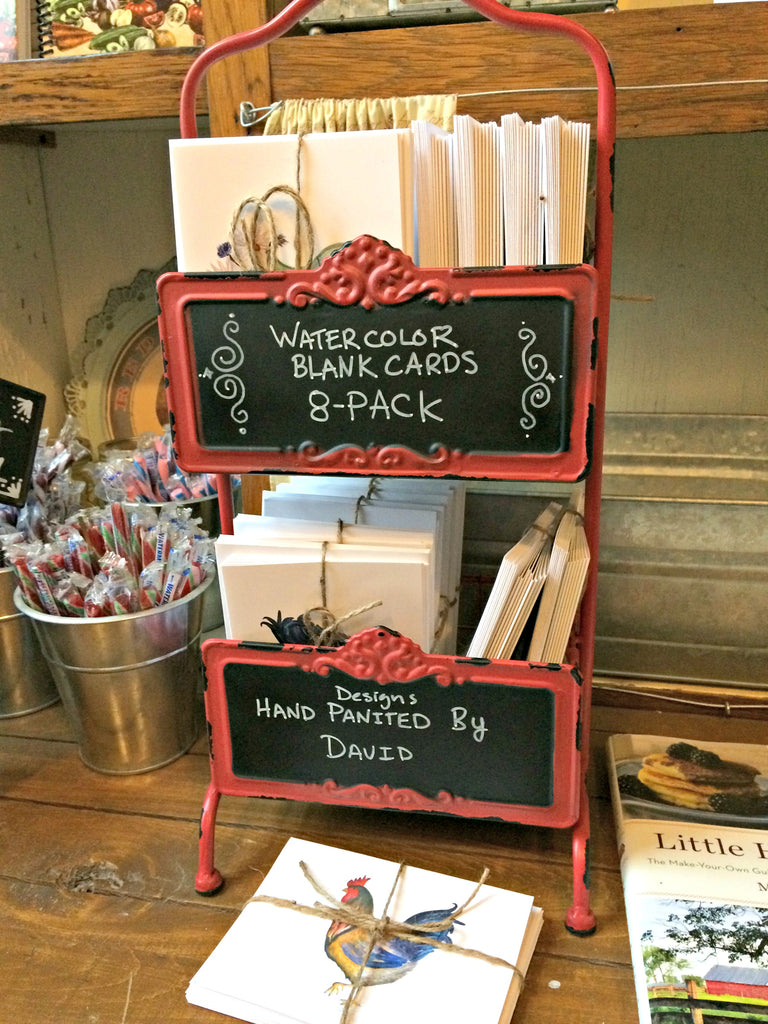 WATERCOLOR
BLANK CARDS
8-PACK
Designs
HAND PANITED By
DAVID
Little
The Make-Your-Own